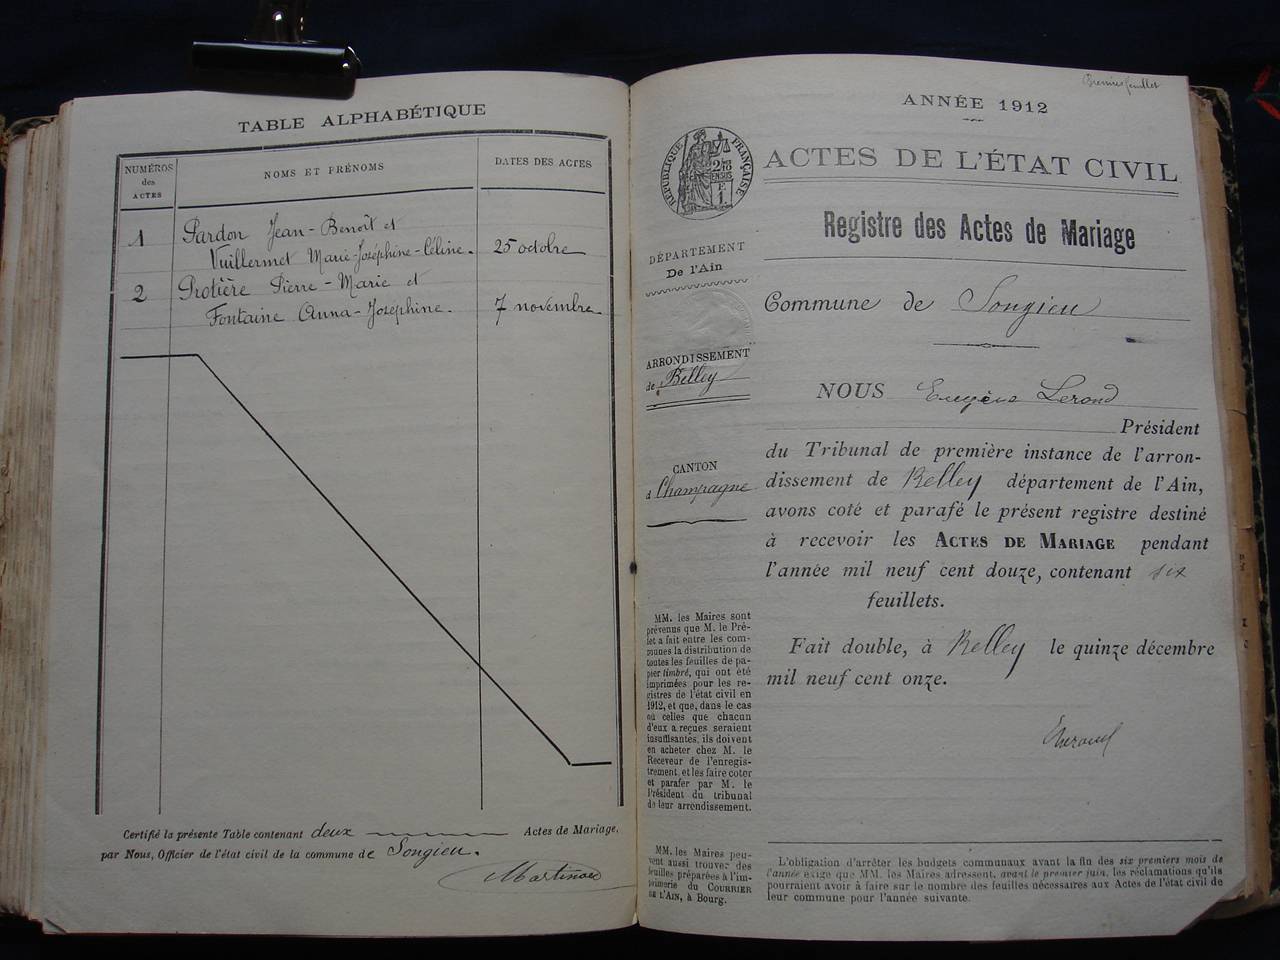 TABLE ALPHABÉTIQUE
NUMÉROS
des
ACTES
NOMS ET PRÉNOMS
DATES DES ACTES
1
Pardon Jean-Benoît et
Vuillermet Marie-Joséphine-Céline.
25 octobre
2
Protière Pierre-Marie et
Fontaine Anna-Joséphine.
7 novembre
Certifié la présente Table contenant deux Actes de Mariage.
par Nous, Officier de l'état civil de la commune de Songieu.
Premier feuillet
ANNÉE 1912
ACTES DE L'ÉTAT CIVIL
RÉPUBLIQUE FRANÇAISE
Registre des Actes de Mariage
DÉPARTEMENT
De l'Ain
Commune de Songieu
ARRONDISSEMENT
de Belley
NOUS Eugène
Président
du Tribunal de première instance de l'arron-
dissement de Belley département de l'Ain,
avons coté et parafé le présent registre destiné
à recevoir les ACTES DE MARIAGE pendant
l'année mil neuf cent douze, contenant six
feuillets.
Fait double, à Belley le quinze décembre
mil neuf cent onze.
CANTON
d Champagne
MM. les Maires sont
prévenus que M. le Pré-
fet a fait entre les com-
munes la distribution de
toutes les feuilles de pa-
pier timbré, qui ont été
imprimées pour les re-
gistres de l'état civil en
1912, et que, dans le cas
où celles que chacun
d'eux a reçues seraient
insuffisantes, ils doivent
en acheter chez M. le
Receveur de l'enregis-
trement, et les faire coter
et parafer par M. le
Président du tribunal
de leur arrondissement.
MM. les Maires peu-
vent aussi trouver des
feuilles préparées à l'im-
primerie du COURRIER
DE L'AIN, à Bourg.
L'obligation d'arrêter les budgets communaux avant la fin des six premiers mois de
l'année exige que MM. les Maires adressent, avant le premier juin, les réclamations qu'ils
pourraient avoir à faire sur le nombre des feuilles nécessaires aux Actes de l'état civil de
leur commune pour l'année suivante.